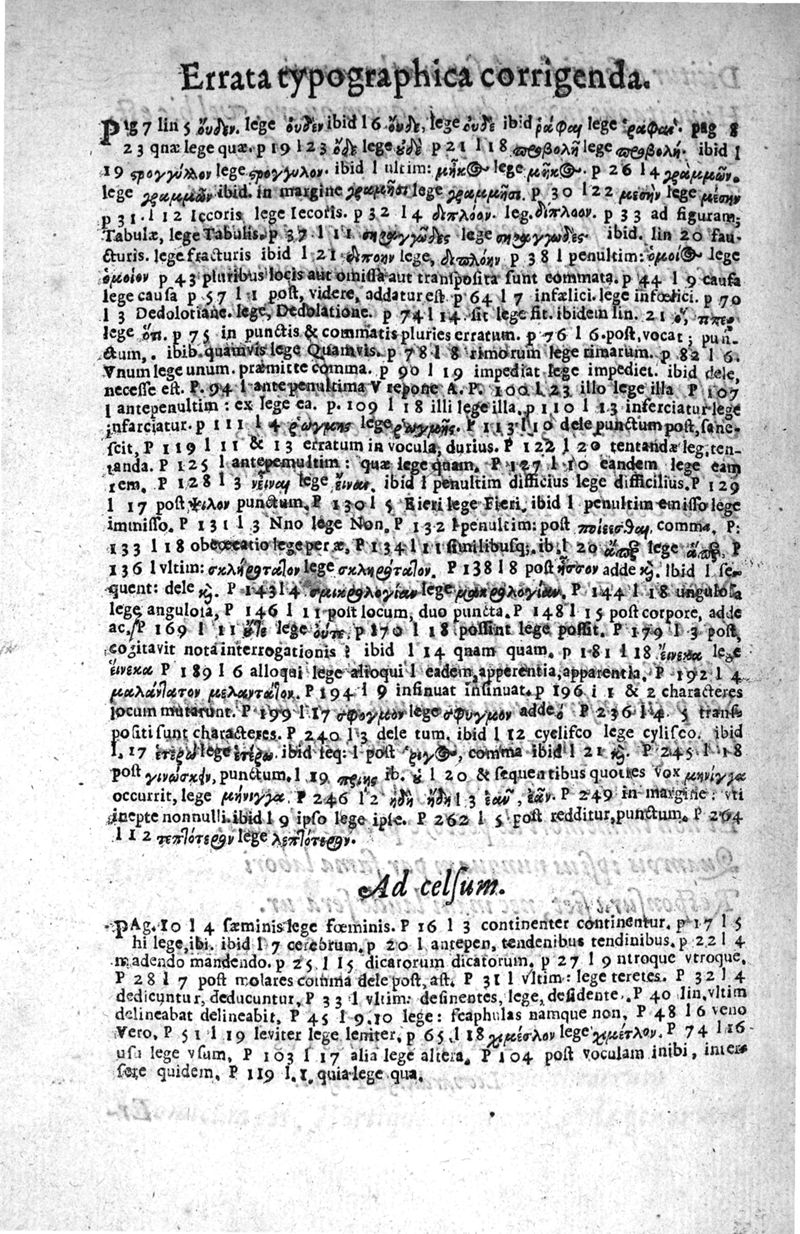 Errata typographica corrigenda.
PAg 7 lin 5 ούδεν. lege ουδὲν ibid l 6 ούδε, lege ουδὲ ibid ῥάφαι lege ῥαφαὶ. pag 8
23 qnæ lege quæ. p 19 l 23 lege p 21 l 18 προβολὴ lege προβολή. ibid l
19 στρογγύλλον lege στρογγυλον. ibid l ultim: μῆκος lege μηκος. p 26 l 4 γράμμων.
lege γραμμῶν ibid. in margine lege γραμμῆσι. p 30 l 22 μεσὴν lege μέσην
p 31. l 12 Iccoris, lege Iecoris. p 32 l 4 διπλόον. leg. δίπλοον. p 33 ad figuram,
Tabulæ, lege Tabulis. p 37 l 11 σηραγγῶδες lege σηραγγωδες. ibid. lin 20 fau-
cturis. lege fracturis ibid l 21 lege, p 38 l penultim: ὁμοιος lege
ὁμοίον p 43 pluribus locis aut omissa aut transposita sunt commata. p 44 l 9 caufa
lege causa p 57 l 1 post, videre, addatur est. p 64 l 7 infælici. lege infœlici. p 70
l 3 Dedolotiane. lege, Dedolatione. p 74 l 14. sit lege fit. ibidem lin. 21
lege ὅπ. p 75 in punctis & commatis pluries erratum. p 76 l 6. post, vocat; pun-
ctum, . ibib. quamvis lege Quamvis. p 78 l 8 rimorum lege rimarum. p 82 l 6.
Vnum lege unum. præmitte comma. p 90 l 19 impediat lege impediet. ibid dele,
necesse est. P. 94 l antepenultima V repone A. P. 100 l 23 illo lege illa P 107
l antepenultim: ex lege ea. p. 109 l 18 illi lege illa. p 110 l 13 inferciatur lege
infarciatur. p 111 l 4 ῥωγμης lege ῥωγμῆς. P 113 l 10 dele punctum post, sane-
scit, P 119 l 11 & 13 erratum in vocula, durius. P 122 l 20 tentandæ leg, ten-
tanda. P 125 l antepemultim: quæ lege quam. P 127 l 10 eandem lege eam
rem. P 128 l 3 lege εἶναι. ibid l penultim difficius lege difficilius. P 129
l 17 post ψιλον punctum. P 130 l 5 Eieri lege Fieri. ibid l penultim emisso lege
immisso. P 131 l 3 Nno lege Non. P 132 l penultim: post ποίεισθαι comma. P:
133 l 18 lege per æ. P 134 l 11 similibusq; ib. l 20 lege P
136 l vltim: σκλήρόταῖον lege σκληρόταῖον. P 138 l 8 post ἧσσον adde κὶ. Ibid l se-
quent: dele κὶ. P 143 l 4 σμικρολογίαν lege μικρολογίαν. P 144 l 18 ungulosa
lege angulosa, P 146 l 11 post locum, duo puncta. P 148 l 15 post corpore, adde
ac. P 169 l 11 lege P 170 l 18 possint lege possit. P 179 l 3 post,
cogitavit nota interrogationis ? ibid l 14 quam quam. p 181 l 18 lege
εἵνεκα P 189 l 6 alloqui lege alioqui l eadem, apperentia, apparentia. P 192 l 4
μαλάνταῖον μελανταῖον. P 194 l 9 insinuat insinuat. p 196 l 1 & 2 characteres
locum mutarunt. P 199 l 17 σφογμὸν lege σφυγμὸν adde P 236 l 4. 5 trans
positi sunt characteres. P 240 l 3 dele tum, ibid l 12 cyelisco lege cylisco. ibid
l. 17 lege ἑτέρω. ibid seq: l post ῥιγος, comma ibid l 21 κὶ. P 245 l 18
post γινώσκην, punctum. l 19 ib. l 20 & sequentibus quoties vox μηνίγγα
occurrit, lege μήνιγγα. P 246 l 2 ἤδη ἤδη l 3 ἐαν, ἐᾶν. P 249 in margine: vti
inepte nonnulli. ibid l 9 ipso lege ipse. P 262 l 5 post redditur, punctum. P 264
l 12 lege λεπτότερον.
Ad celsum.
PAg. 10 l 4 fæminis lege fœminis. P 16 l 3 continenter continentur. p 17 l 5
hi lege, ibi. ibid l 7 cerebrum. p 20 l antepen, tendenibus tendinibus. p 22 l 4
madendo mandendo. p 25 l 15 dicarorum dicatorum. p 27 l 9 ntroque vtroque.
P 28 l 7 post molares comma dele post, ast. P 31 l vltim: lege teretes. P 32 l 4
dedicuntur, deducuntur. P 33 l vltim: desinentes, lege, desidente. P 40 lin. vltim
delineabat delineabit. P 45 l 9.10 lege: scaphulas namque non, P 48 l 6 veno
Vero. P 51 l 19 leviter lege leniter. p 65. l 18 χιμέσλον lege χιμέτλον. P 74 l 16
usu lege vsum, P 103 l 17 alia lege altera. P 104 post voculam inibi, inter-
sere quidem. P 119 l. 1. quia lege qua.